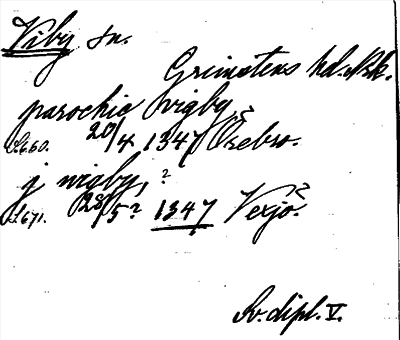 Viby sn.
Grimstens hd. Nrk.
parochia vigby,
S. 660. 20/4 1347 Örebro.
j wigby, ?
S. 671. 28/5? 1347 Vexjö?
Sv. dipl. V.